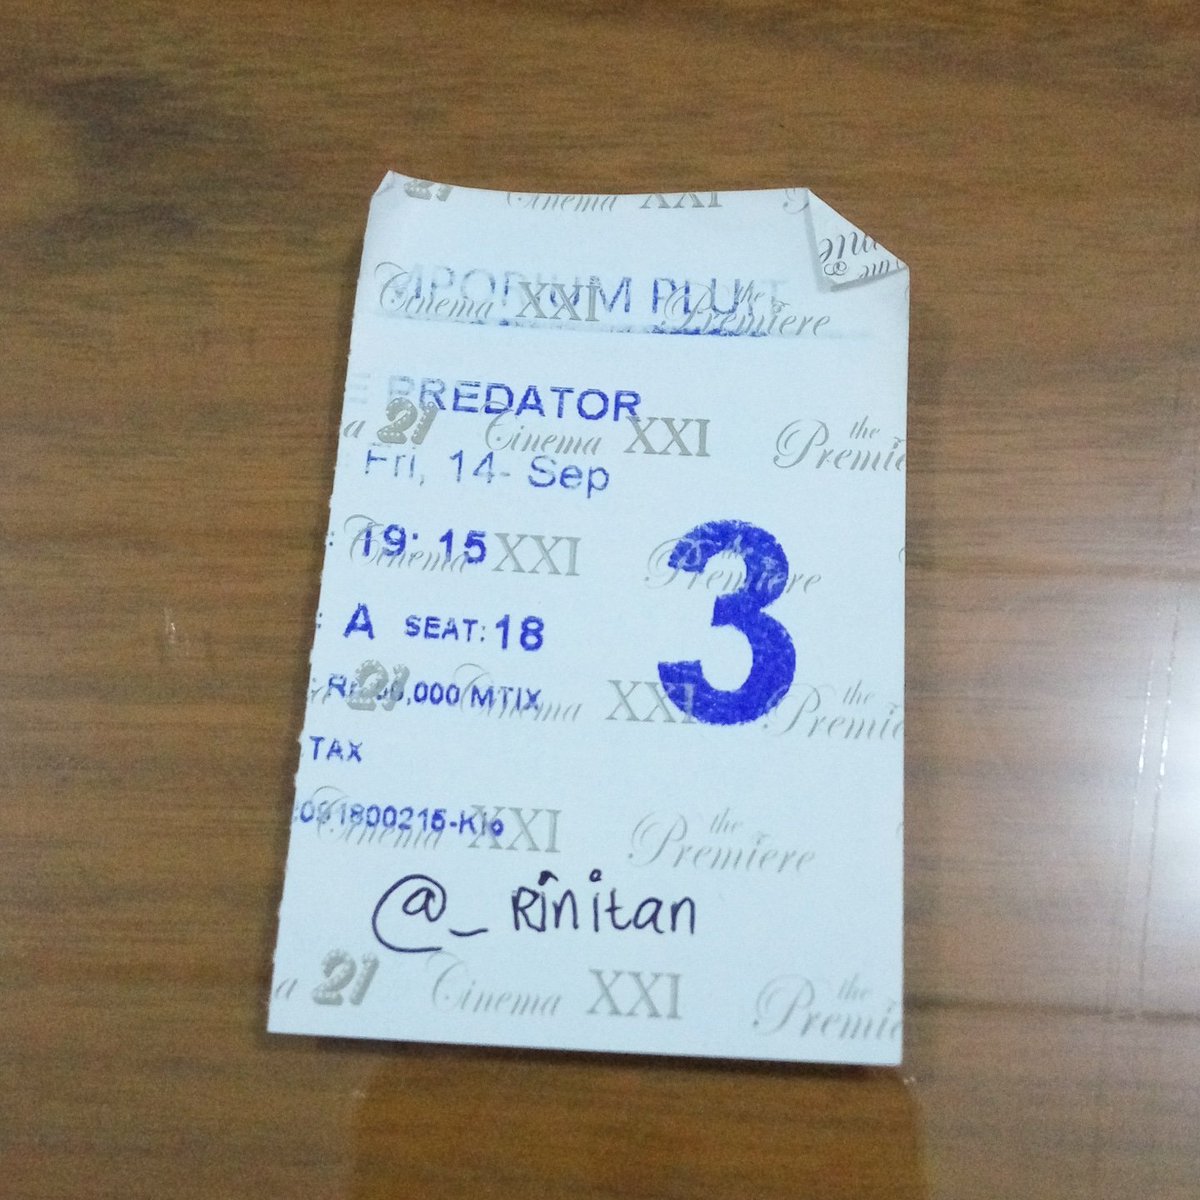 21 Cinema XXI
MPODIUM PLUIT
Cinema XXI the Premiere
E PREDATOR
a 21 Cinema XXI the Premie
Fri, 14- Sep
: 19:15
Cinema XXI the Premiere
3
: A SEAT:18
: Rp ,000 MTIX
21 Cinema XXI the Premie
TAX
091800215-Klo
Cinema XXI the Premiere
@_Rinitan
a 21 Cinema XXI the Premie